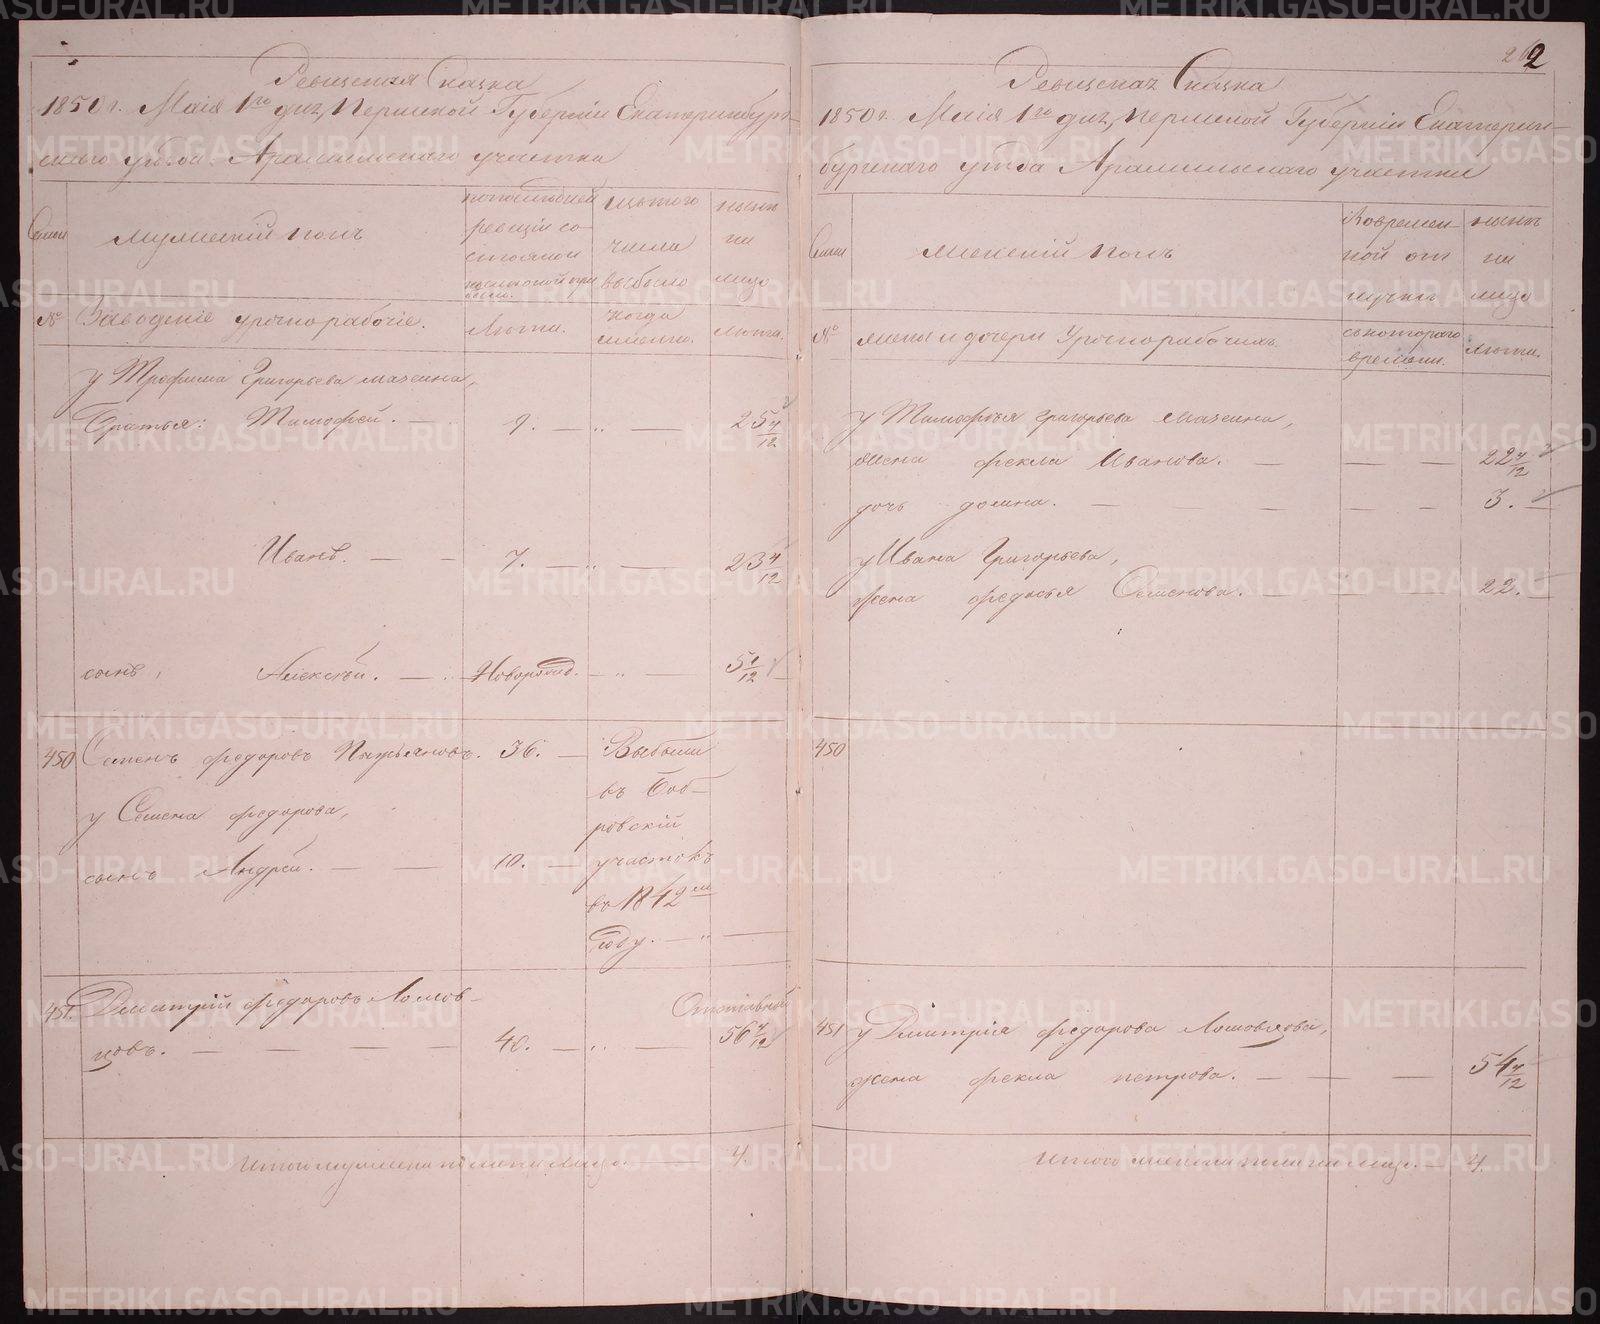 Ревизская Сказка
1850 г. Маія 1го дня, Пермской Губерніи Екатеринбург-
скаго уѣзда Арамильскаго участка
Семьи
мужескій полъ
по последней
ревизіи со-
стояло и
после оной при
было.
Изъ того
числа
выбыло
нынѣ
на
лицо
№
Заводскіе урочнорабочіе.
Лѣта.
когда
именно.
лѣта.
у Трофима Григорьева
Братья: Тимофей. — 9. — „ — 25 4/12
Иванъ. — — 7. — „ — 23 4/12
сынъ, Алексѣй. — Новорожд. — „ — 5 1/12
450 Семенъ Федоровъ 36. — Выбыли
въ Боб-
ровскій
у Семена Федорова,
сынъ Андрей. — — 10. — участокъ
въ 1842 м
году. — „ —
451. Дмитрій Федоровъ Ломов-
цовъ. — — — — 40. — „ — Отставной
56 4/12
Итого мужеска пола на лицо. — 4.
262
Ревизская Сказка
1850 г. Маія 1го дня, Пермской Губерніи Екатерин-
бургскаго уѣзда Арамильскаго участка
Семьи
женскій полъ
Во времен-
ной от
лучки
нынѣ
на
лицо
№
жены и дочери Урочнорабочихъ.
съ котораго
времени.
лѣта.
у Тимофѣя Григорьева
жена Фекла Иванова. — — — 22 4/12
дочь Домна. — — — — 3.
у Ивана Григорьева,
жена Федосья Семенова. — — — 22.
450
451 у Дмитрія Федорова
жена Фекла Петрова. — — — 54 4/12
Итого женска пола на лицо. — 4.
METRIKI.GASO-URAL.RU